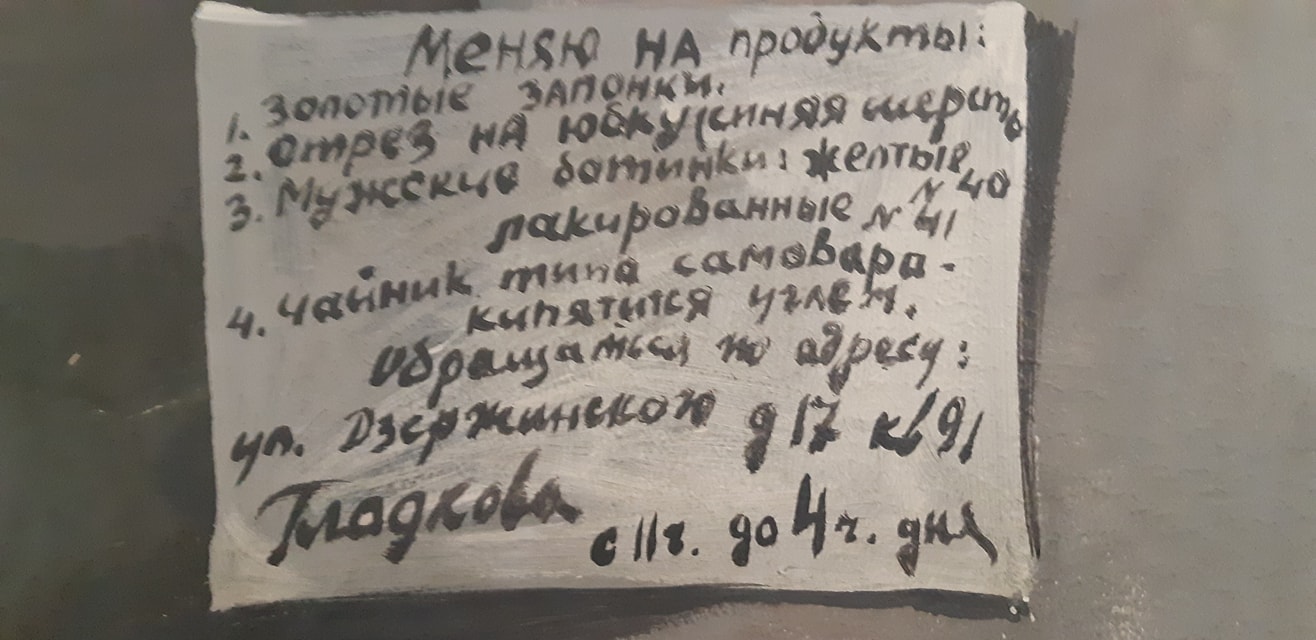 Меняю на продукты:
1. Золотые запонки.
2. Отрез на юбку (синяя шерсть
3. Мужские ботинки: желтые N 40
лакированные N 41
4. Чайник типа самовара -
кипятится углем.
Обращаться по адресу:
ул. Дзержинского д 17 кв 91
Гладкова
с 11 ч. до 4 ч. дня